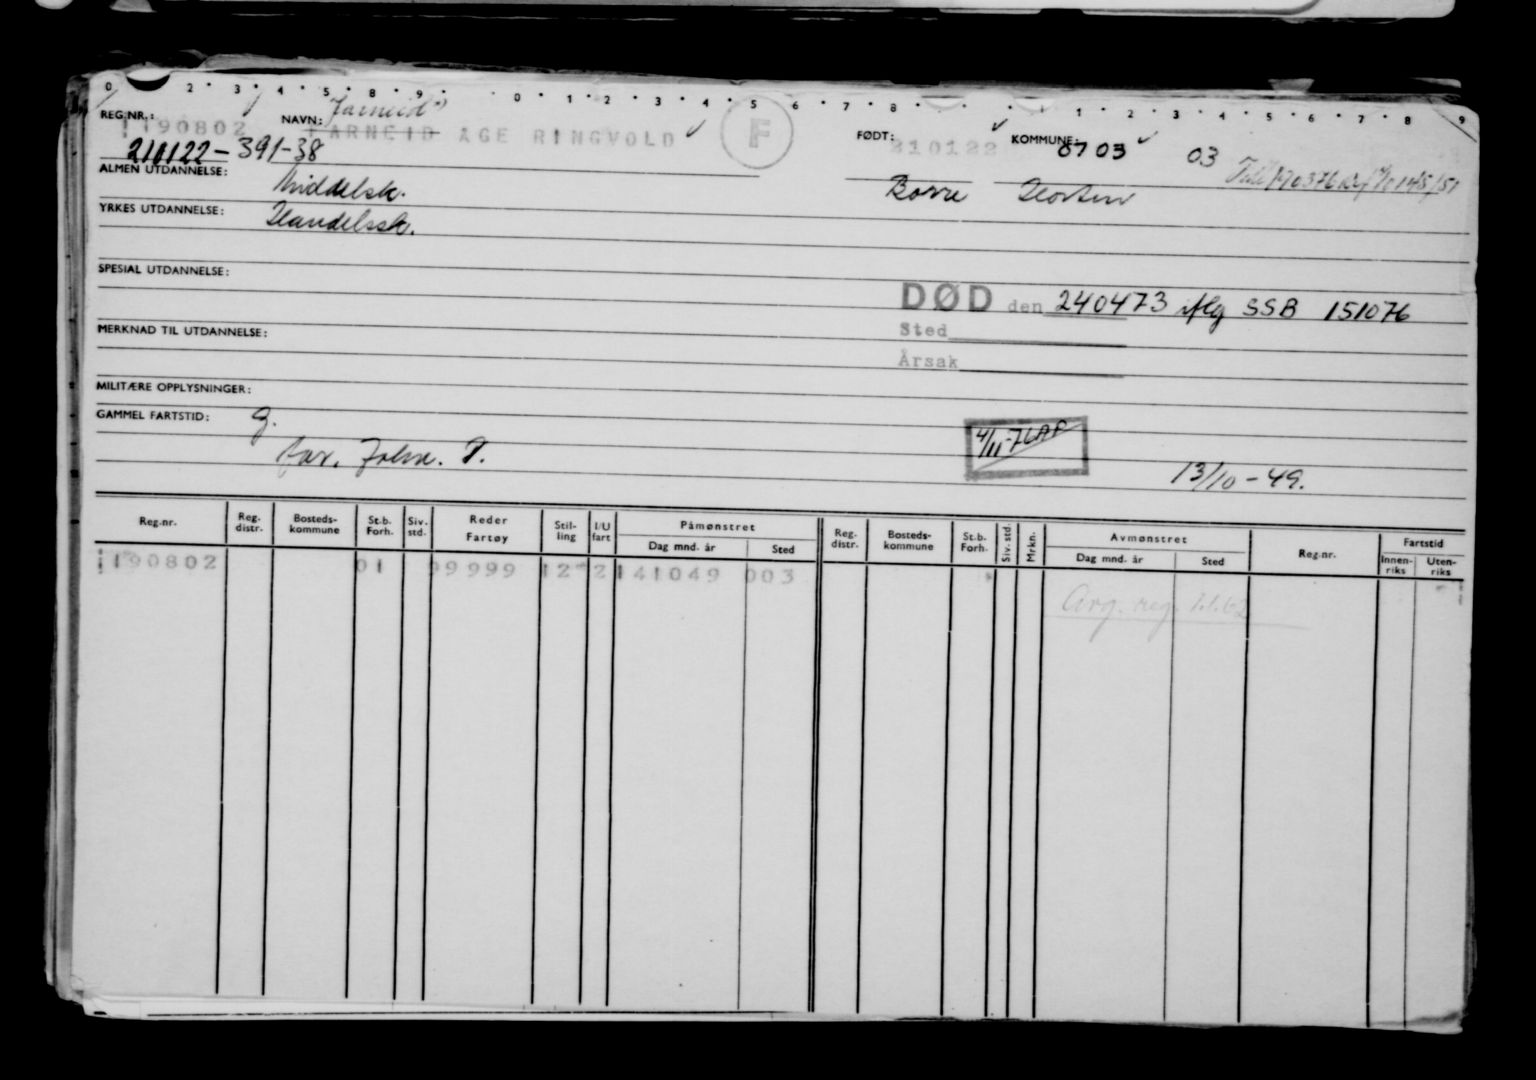 0 2 3 4 5 8 9 0 1 2 3 4 5 6 7 8 1 2 3 4 5 6 7 8 9
REG.NR.: 1190802 NAVN: ARNEID AGE RINGVOLD F FØDT: 210122 KOMMUNE: 0703 03
210122-391-38
ALMEN UTDANNELSE: Middelsk. Borre Horten
YRKES UTDANNELSE: Handelssk.
SPESIAL UTDANNELSE:
DØD den 240473 iflg SSB 151076
MERKNAD TIL UTDANNELSE: Sted
Årsak
MILITÆRE OPPLYSNINGER:
GAMMEL FARTSTID: G.
4/11-76 13/10-49.
Reg.nr. Reg. distr. Bosteds-kommune St.b. Forh. Siv. std. Reder Fartøy Stil-ling I/U fart Påmønstret Dag mnd. år Sted Reg. distr. Bosteds-kommune St.b. Forh. Siv. std. Mrkn. Avmønstret Dag mnd. år Sted Reg.nr. Fartstid Innen-riks Uten-riks
1190802 01 99999 12 2 141049 003
Avg. reg. 1.1.62